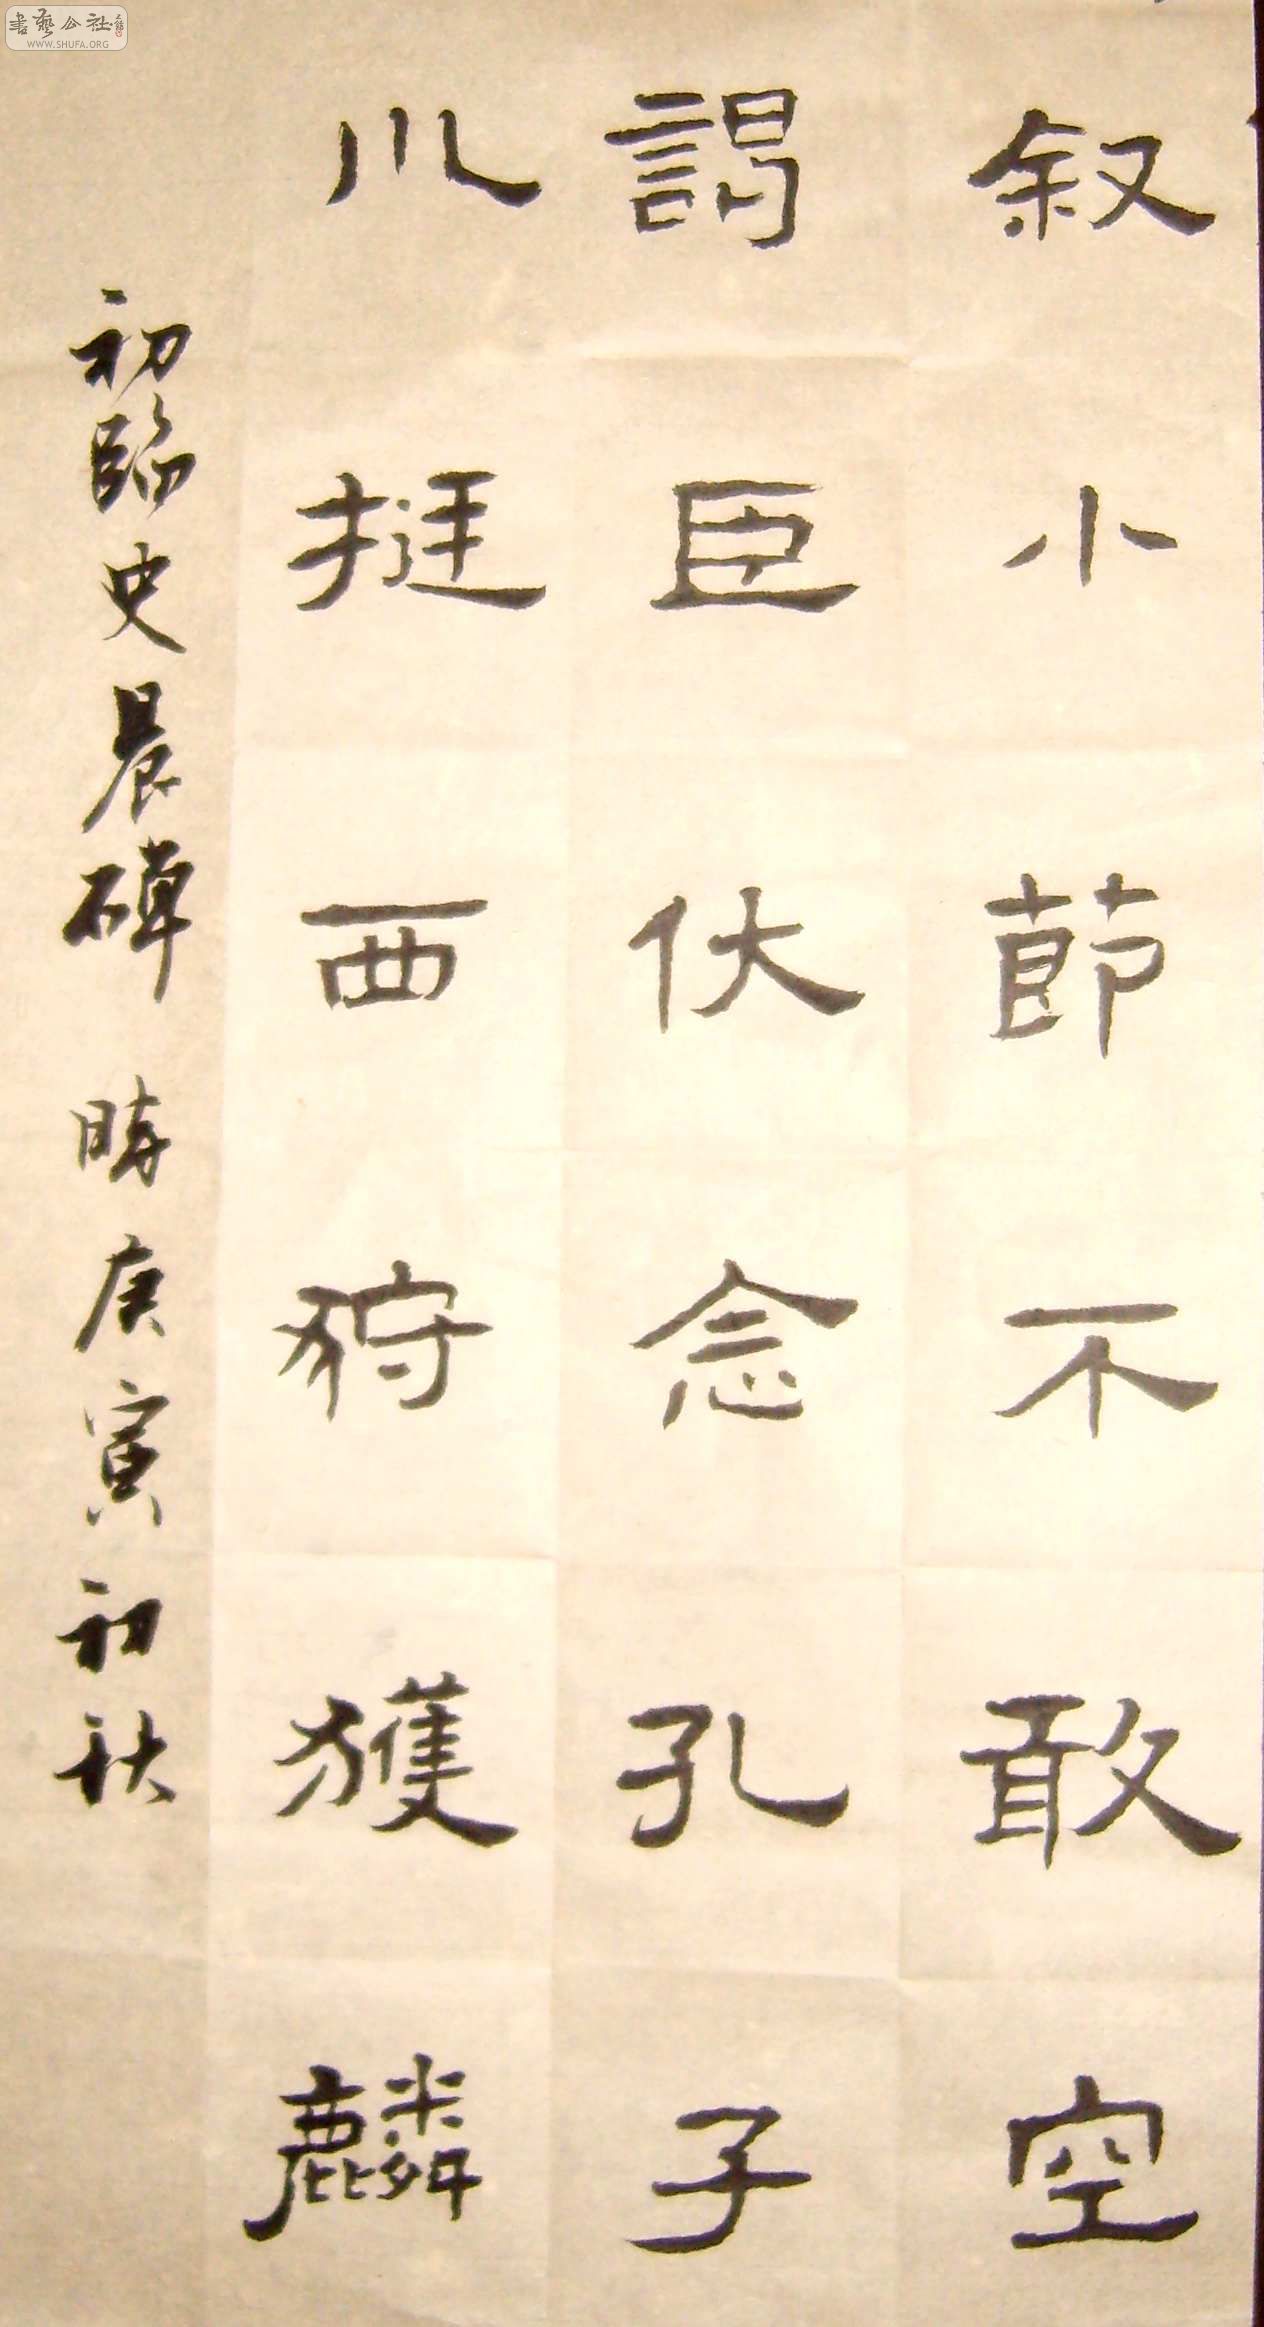 叙小節不敢空
謁臣伏念孔子
以挺西狩獲麟
初臨史晨碑 時庚寅初秋
書藝公社
WWW.SHUFA.ORG